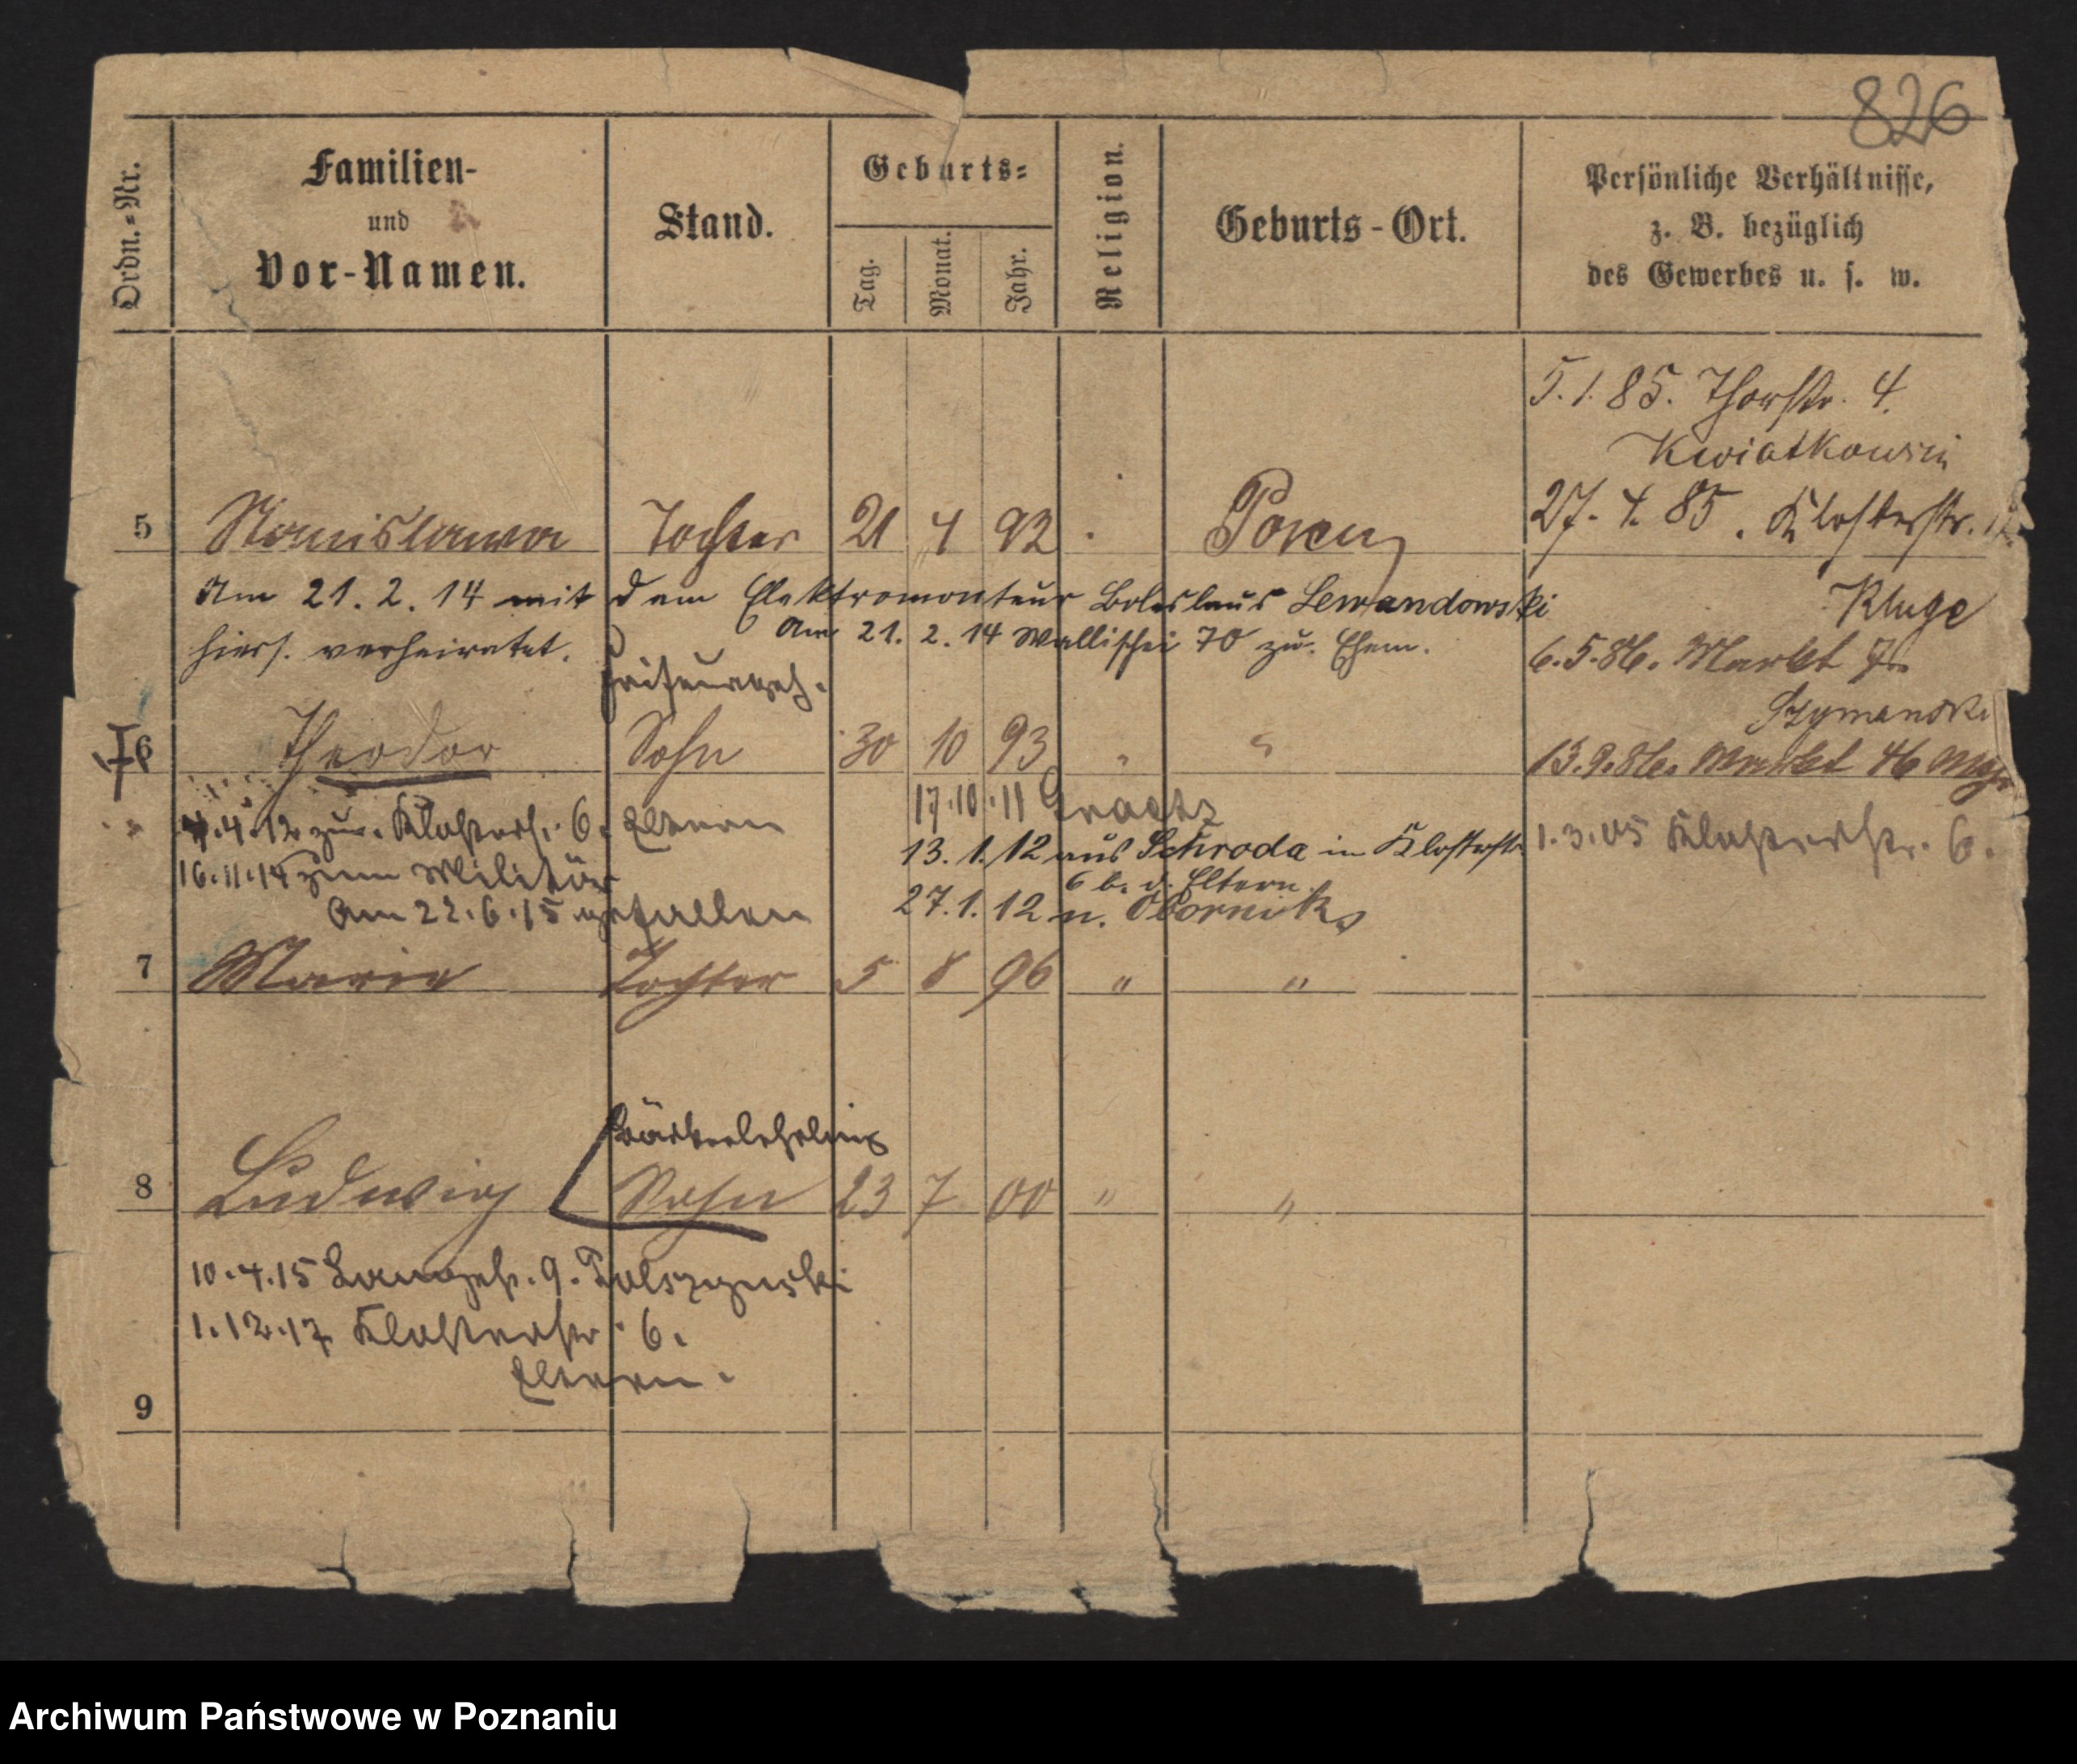 826
Ordn.-Nr.
Familien-
und
Vor-Namen.
Stand.
Geburts-
Tag.
Monat.
Jahr.
Religion.
Geburts-Ort.
Persönliche Verhältnisse,
z. B. bezüglich
des Gewerbes u. s. w.
5.1.85. Thorstr. 4.
Kwiatkowski
27.4.85. Klosterstr.
Kluge
6.5.86. Markt
Szymanski
13.9.86. Markt 46
1.3.05 Klosterstr. 6.
5 Stanislawa Tochter 21 4 92 Posen
Am 21.2.14 mit dem Elektromonteur Boleslaus Lewandowski
hiers. verheiratet. Am 21.2.14 Wallischei 70 zu. Ehem.
Friseurgeh.
6 Theodor Sohn 30 10 93 " "
17.10.11 Graetz
4.4.12 zur. Klosterst. 6. Eltern
13.1.12 aus Schroda in Klosterstr
6 b. d. Eltern.
16.11.14 zum Militär
27.1.12 n. Obornik
Am 22.6.15 gefallen
7 Marie Tochter 5 8 96 " "
8 Ludwig Sohn 23 7 00 " "
10.4.15 Langestr. 9.
1.12.17 Klosterstr. 6.
Eltern.
9
Archiwum Państwowe w Poznaniu